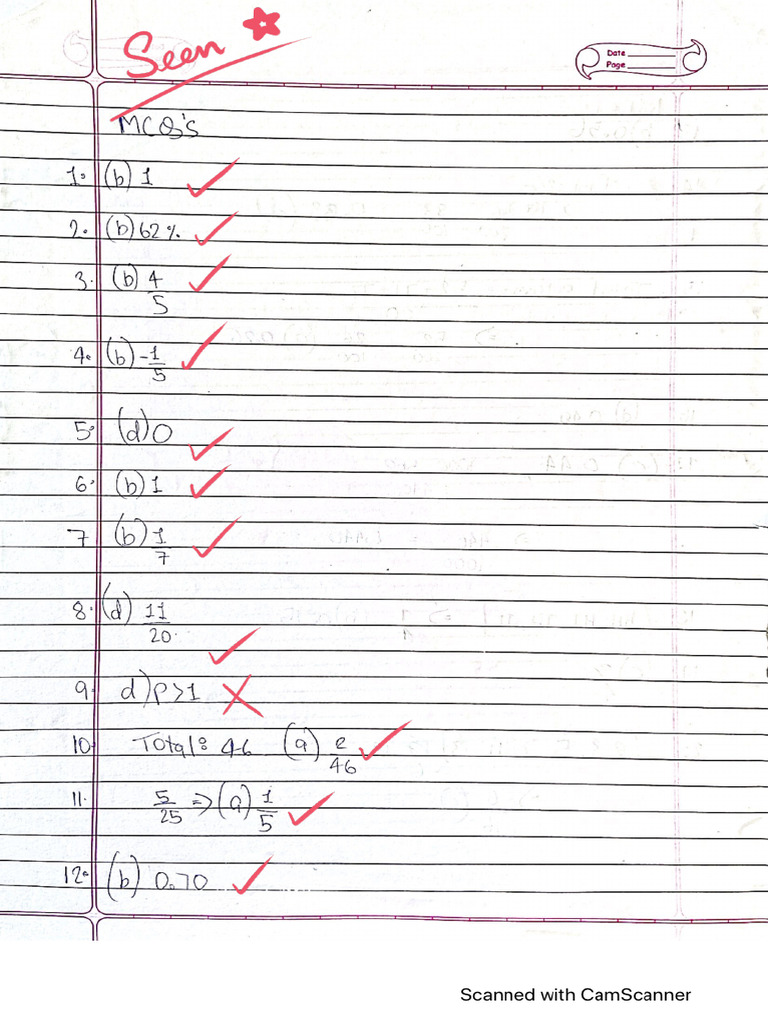 Seen
Date
Page
MCQ's
1. (b) 1
2. (b) 62%
3. (b) 4/5
4. (b) -1/5
5. (d) 0
6. (b) 1
7 (b) 1/7
8. (d) 11/20.
9 d) P>1
10 Total: 46 (a) 2/46
11. 5/25 => (a) 1/5
12. (b) 0.70
Scanned with CamScanner